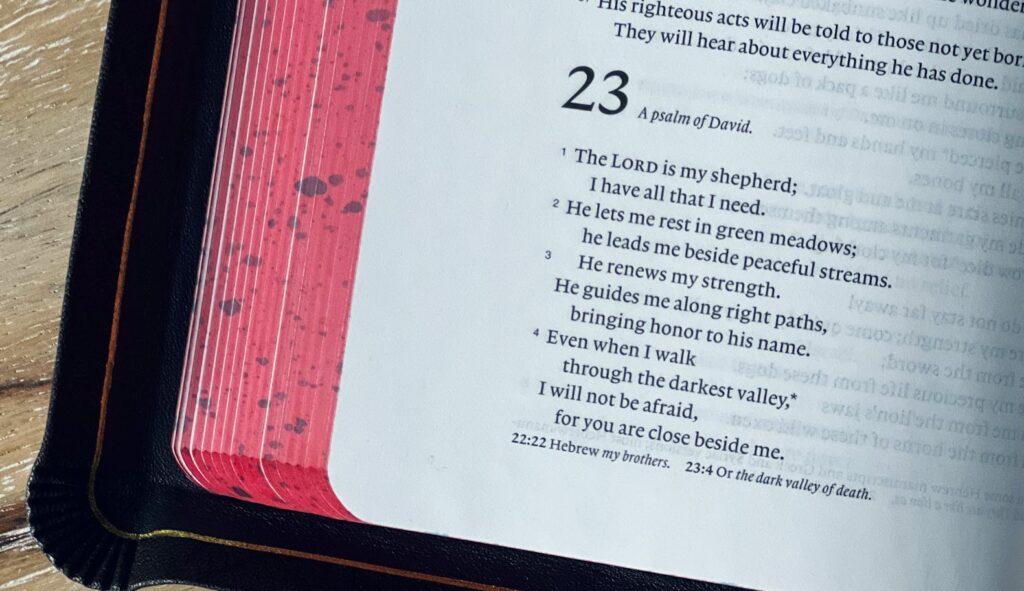 His righteous acts will be told to those not yet
They will hear about everything he has done.
23 A psalm of David.
1 The LORD is my shepherd;
I have all that I need.
2 He lets me rest in green meadows;
he leads me beside peaceful streams.
3 He renews my strength.
He guides me along right paths,
bringing honor to his name.
4 Even when I walk
through the darkest valley,*
I will not be afraid,
for you are close beside me.
22:22 Hebrew my brothers. 23:4 Or the dark valley of death.